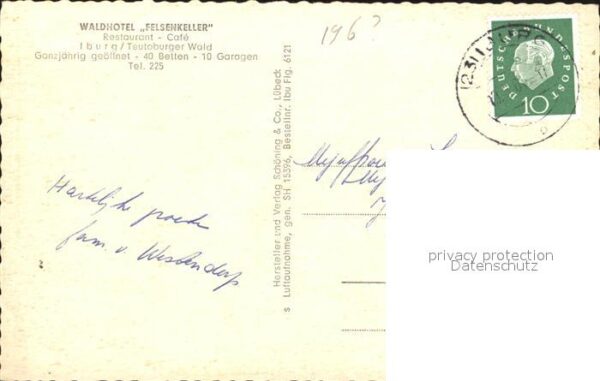 WALDHOTEL „FELSENKELLER"
Restaurant - Café
Iburg/Teutoburger Wald
Ganzjährig geöffnet - 40 Betten - 10 Garagen
Tel. 225
196?
Hersteller und Verlag Schöning & Co., Lübeck
s Luftaufnahme, gen. SH 15396, Bestellnr. Ibu Flg. 6121
DEUTSCHE BUNDESPOST
10
Hartelijke groeten
fam. v. Westendorp
privacy protection
Datenschutz